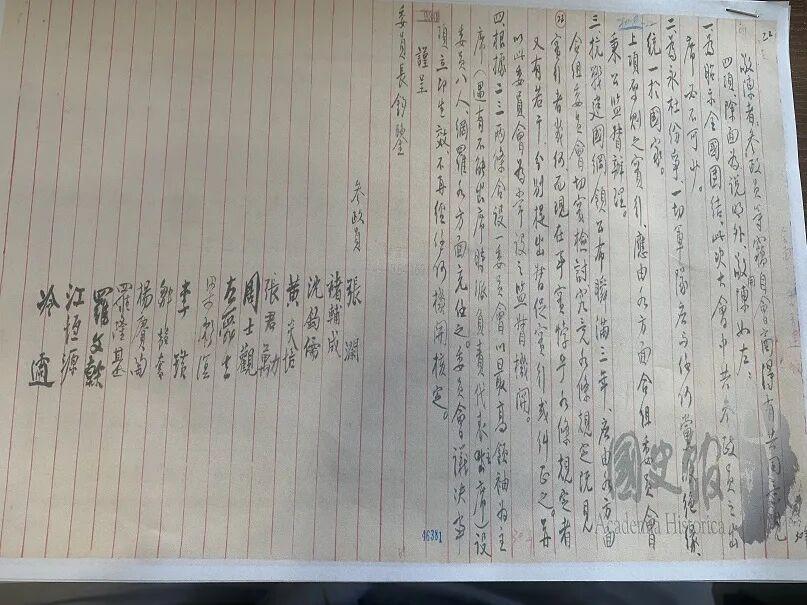 敬陳者,參政員等竊自會商得有共同意見
四項除面為說明外敬陳如左。
一為昭示全國團結,此次大會中共參政員之出
席必不可少。
二為永杜倫爭一切軍隊應與任何黨派絕緣,
統一於國家。
上項原則之實引,應由各方面合組委員會
秉公監督辦理。
三抗戰建國綱領公布將滿三年,應由各方面
合組委員會切實檢討
實引者若何而現在事實悖乎各條規定者
又有若干,分別提出督促實引或糾正之。並
以此委員會為常設之監督機關。
四根據二三兩條合設一委員會以最高領袖為主
席(遇有不能出席時派負責代表出席)設
委員八人,網羅各方面充任之。委員會議決事
項立即生效不再經任何機關核定。
謹呈
委員長鈞鑒
參政員
張瀾
褚輔成
沈鈞儒
黃炎培
張君勱
周士觀
左舜生
李璜
楊賡陶
羅隆基
羅文幹
江恆源
冷遹
46381
國史館
Academia Historica